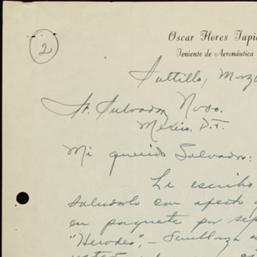 2
Oscar Flores Tapi
Teniente de Aeronáutica
Saltillo, Marzo
Sr. Salvador Novo.
México. D.F.
Mi querido Salvador:
Le escribo
saludarlo con afecto
en paquete por sep
"Herodes", - Semblanza